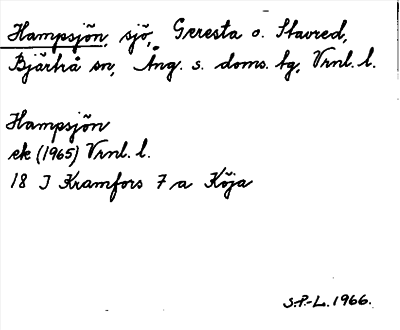 Hampsjön, sjö, Geresta o. Stavred,
Bjärtrå sn, Ång. s. doms. tg, Vrnl. l.
Hampsjön
ek (1965) Vrnl. l.
18 J Kramfors 7 a Köja
S.P.-L. 1966.